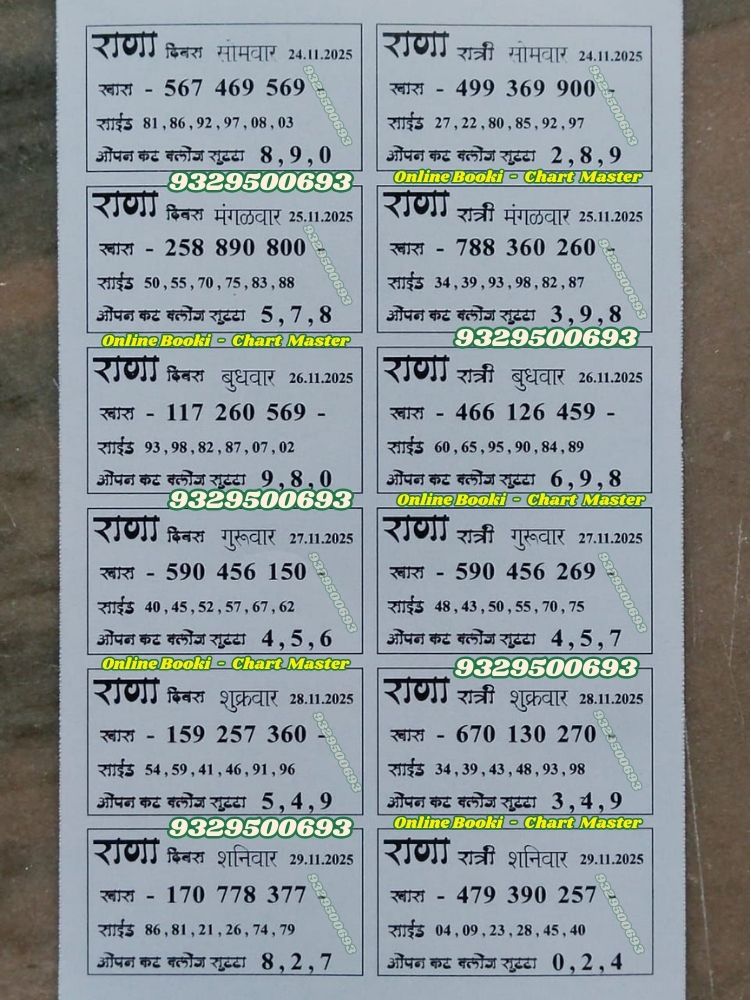 राणा दिवस सोमवार 24.11.2025
खास - 567 469 569 -
साईड 81,86,92,97,08,03
ओपन कट क्लोज सुट्टा 8,9,0
9329500693
9329500693
राणा रात्री सोमवार 24.11.2025
खास - 499 369 900 -
साईड 27,22,80,85,92,97
ओपन कट क्लोज सुट्टा 2,8,9
9329500693
Online Booki - Chart Master
राणा दिवस मंगळवार 25.11.2025
खास - 258 890 800 -
साईड 50,55,70,75,83,88
ओपन कट क्लोज सुट्टा 5,7,8
9329500693
Online Booki - Chart Master
राणा रात्री मंगळवार 25.11.2025
खास - 788 360 260 -
साईड 34,39,93,98,82,87
ओपन कट क्लोज सुट्टा 3,9,8
9329500693
9329500693
राणा दिवस बुधवार 26.11.2025
खास - 117 260 569 -
साईड 93,98,82,87,07,02
ओपन कट क्लोज सुट्टा 9,8,0
9329500693
राणा रात्री बुधवार 26.11.2025
खास - 466 126 459 -
साईड 60,65,95,90,84,89
ओपन कट क्लोज सुट्टा 6,9,8
Online Booki - Chart Master
राणा दिवस गुरूवार 27.11.2025
खास - 590 456 150 -
साईड 40,45,52,57,67,62
ओपन कट क्लोज सुट्टा 4,5,6
9329500693
Online Booki - Chart Master
राणा रात्री गुरूवार 27.11.2025
खास - 590 456 269 -
साईड 48,43,50,55,70,75
ओपन कट क्लोज सुट्टा 4,5,7
9329500693
9329500693
राणा दिवस शुक्रवार 28.11.2025
खास - 159 257 360 -
साईड 54,59,41,46,91,96
ओपन कट क्लोज सुट्टा 5,4,9
9329500693
9329500693
राणा रात्री शुक्रवार 28.11.2025
खास - 670 130 270 -
साईड 34,39,43,48,93,98
ओपन कट क्लोज सुट्टा 3,4,9
9329500693
Online Booki - Chart Master
राणा दिवस शनिवार 29.11.2025
खास - 170 778 377 -
साईड 86,81,21,26,74,79
ओपन कट क्लोज सुट्टा 8,2,7
9329500693
राणा रात्री शनिवार 29.11.2025
खास - 479 390 257 -
साईड 04,09,23,28,45,40
ओपन कट क्लोज सुट्टा 0,2,4
9329500693